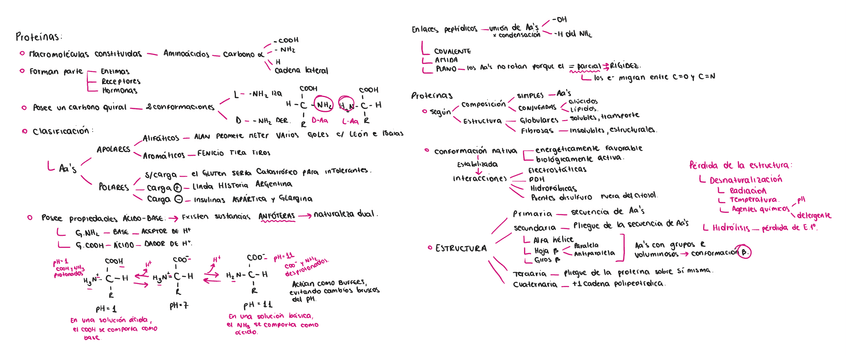 Proteínas:
Macromoléculas constituidas — Aminoácidos — Carbono α
-COOH
-NH₂
H
Cadena lateral
Forman parte
Enzimas
Receptores
Hormonas
Posee un carbono quiral — 2 conformaciones
L - -NH₂ IZQ
D - -NH₂ DER.
COOH
H-C-NH₂
R
D-Aa
COOH
H₂N-C-H
R
L-Aa
Clasificación:
Aa's
APOLARES
Alifáticos — ALAN PROMETE METER VARIOS GOLES C/ LEÓN E ISAIAS
Aromáticos — FENICIO TIRA TIROS
POLARES
S/carga — el GLUTEN SERÍA CATASTRÓFICO PARA INTOLERANTES.
Carga + — LINDA HISTORIA ARGENTINA
Carga - — INSULINAS ASPÁRTICA Y GLARGINA
Posee propiedades ÁCIDO-BASE. → EXISTEN SUSTANCIAS ANFÓTERAS → naturaleza dual.
G.NH₂ — BASE — ACEPTOR DE H⁺
G.COOH — ÁCIDO — DADOR DE H⁺.
pH=1
COOH y NH₂
protonados
COOH
H₃N⁺-C-H
R
pH=1
H⁺
COO⁻
H₃N⁺-C-H
R
pH=7
H⁺
COO⁻
H₂N-C-H
R
pH=11
pH=11
COO⁻ y NH₂
desprotonados
Actúan como BUFFERS,
evitando cambios bruscos
del pH.
En una solución ácida,
el COOH se comporta como
base.
En una solución básica,
el NH₃ se comporta como
ácido.
Enlaces peptídicos — unión de Aa's
× condensación
-OH
-H del NH₂
COVALENTE
AMIDA
PLANO — los Aa's no rotan porque el = parcial → RIGIDEZ.
los e⁻ migran entre C=O y C=N
Proteínas
Según
Composición
SIMPLES — Aa's
CONJUGADAS
Glúcidos
Lípidos.
Estructura
Globulares — solubles, transporte
Fibrosas — insolubles, estructurales.
Conformación nativa
energéticamente favorable
biológicamente activa.
Estabilizada
Interacciones
Electrostáticas
PDH
Hidrofóbicas
Puentes disulfuro fuera del citosol.
ESTRUCTURA
Primaria — secuencia de Aa's
Secundaria — Pliegue de la secuencia de Aa's
Alfa hélice
Hoja β
Paralela
Antiparalela
Giros β
Aa's con grupos R
voluminosos → conformación β.
Terciaria — pliegue de la proteína sobre sí misma.
Cuaternaria — +1 cadena polipeptídica.
Pérdida de la estructura:
Desnaturalización
Radiación
Temperatura
Agentes químicos
pH
detergente
Hidrólisis — pérdida de E.P.